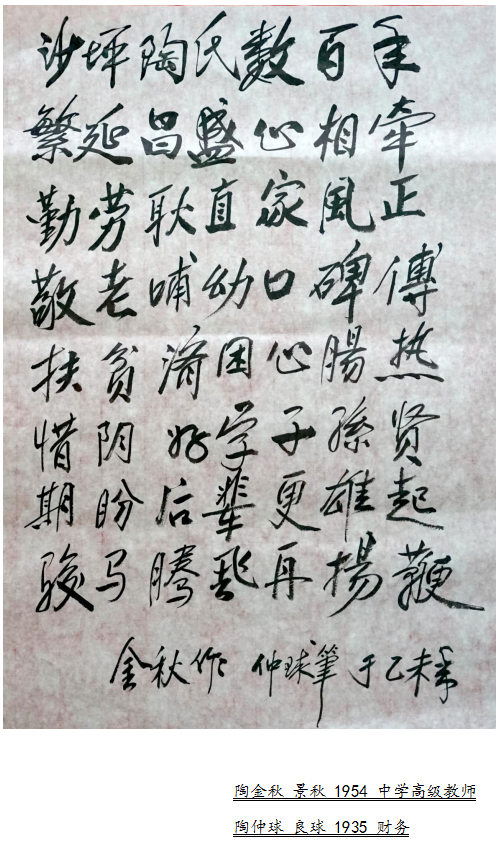 沙坪陶氏数百年
繁延昌盛心相牵
勤劳耿直家风正
敬老哺幼口碑傳
扶贫濟困心腸热
惜阴好学子孫贤
期盼后辈更雄起
骏马腾飛再揚鞭
金秋作 仲球筆 于乙未年
陶金秋 景秋 1954 中学高级教师
陶仲球 良球 1935 财务